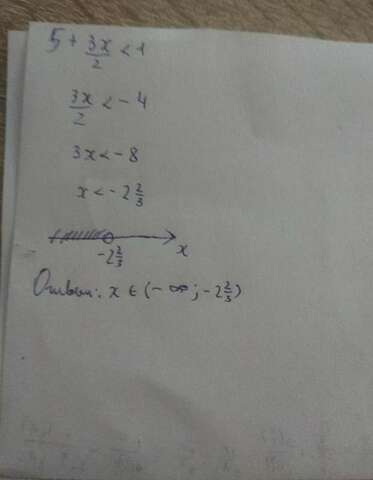 5 + 3x/2 < 1
3x/2 < - 4
3x < - 8
x < - 2 2/3
-2 2/3 x
Ответ: x ∈ (- ∞ ; - 2 2/3)